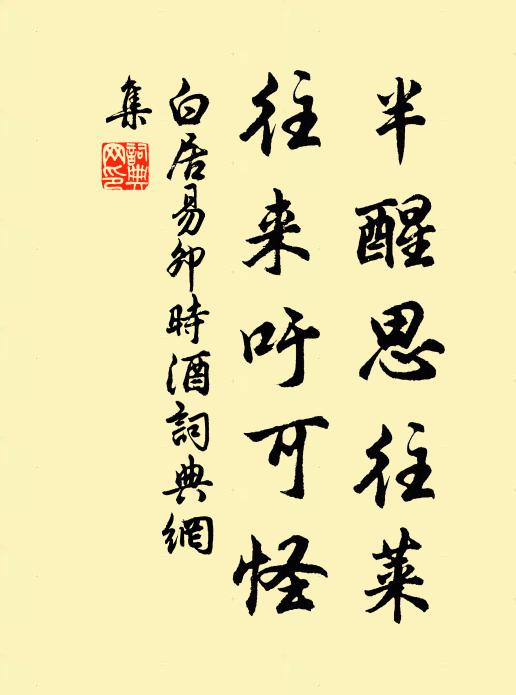 半醒思往菜
往来吁可怪
白居易卯時酒詞典網
集
詞典
网印